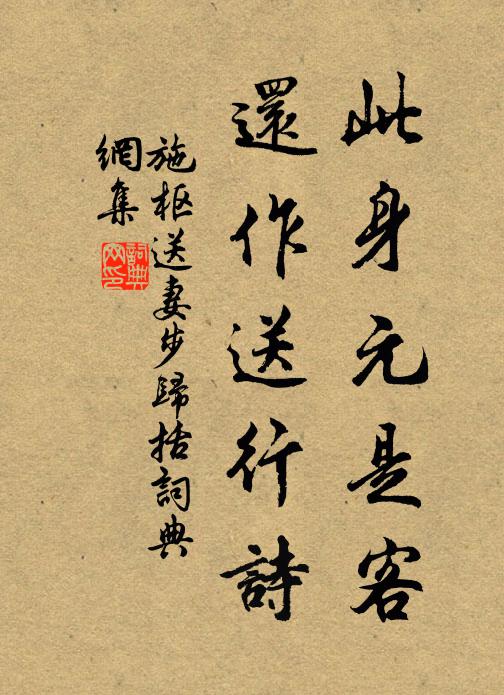 此身元是客
還作送行詩
施枢送妻步歸括詞典
網集
詞典網印